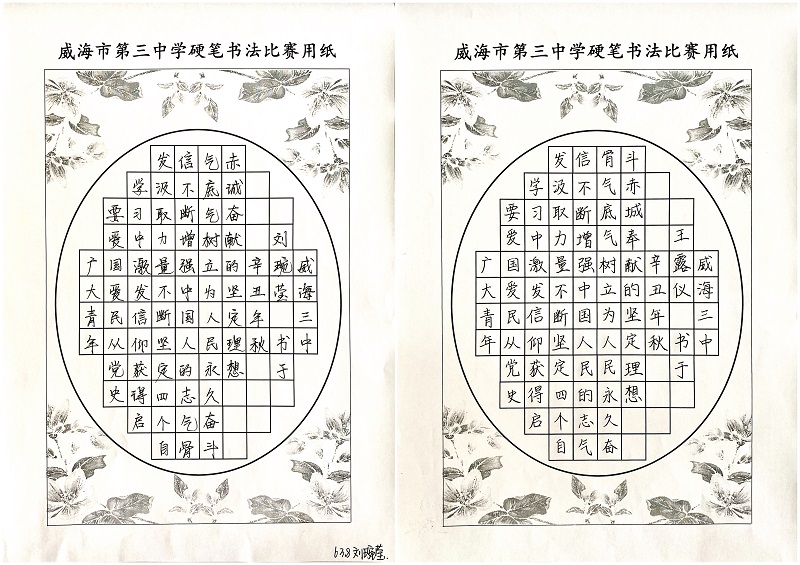 威海市第三中学硬笔书法比赛用纸
广大青年
要爱国爱民从党史
学习中激发信仰获得启
发汲取力量不断坚定四个自
信不断增强中国人的志气骨
气底气树立为人民永久奋斗
赤诚奋献的坚定理想
辛丑年秋
刘琬莹书于
威海三中
638刘琬莹
威海市第三中学硬笔书法比赛用纸
广大青年
要爱国爱民从党史
学习中激发信仰获得启
发汲取力量不断坚定四个自
信不断增强中国人民的志气
骨气底气树立为人民永久奋
斗赤城奉献的坚定理想
辛丑年秋
王露仪书于
威海三中